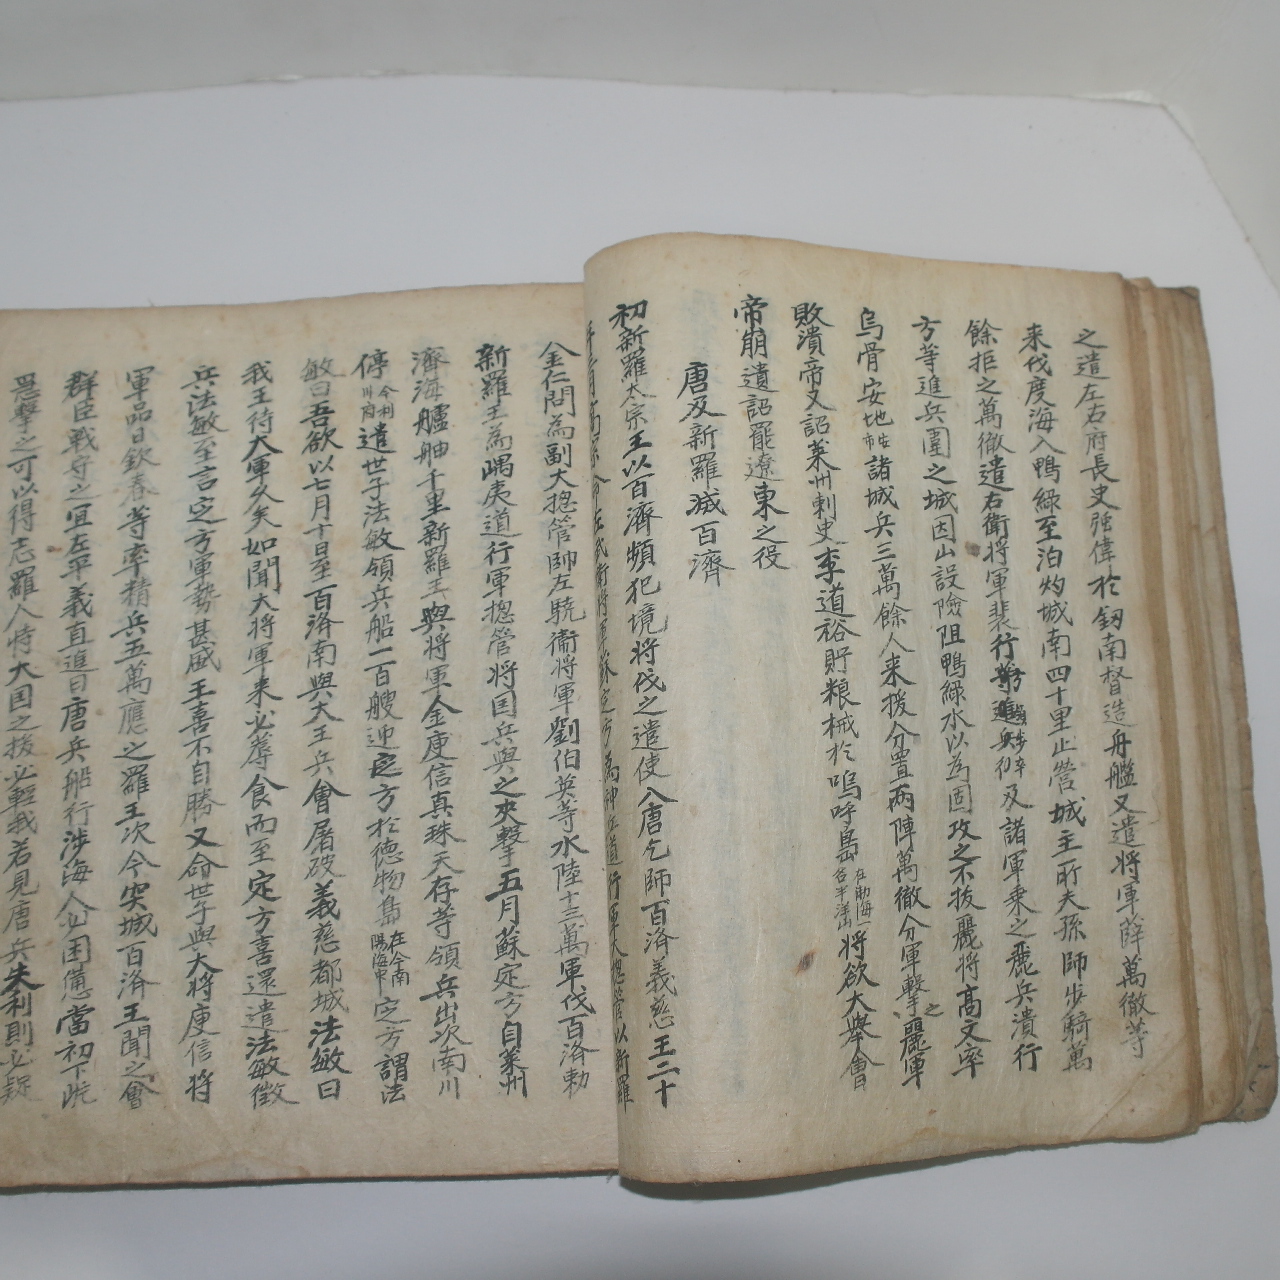 之遣左右府長史强偉於釰南督造舟艦又遣將軍薛萬徹等
来伐度海入鴨綠至泊灼城南四十里止營城主所夫孫師步騎萬
餘拒之萬徹遣右衛將軍裴行方 及諸軍乗之麗兵潰行
方等進兵圍之城因山設險阻鴨綠水以為固攻之不拔麗將高文率
烏骨安地諸城兵三萬餘人来援分置兩陣萬徹分軍擊之麗軍
敗潰帝又詔莱州刺史李道裕貯粮械於嗚呼島將欲大舉會
帝崩遺詔罷遼東之役
唐及新羅滅百濟
初新羅太宗王以百濟頻犯境將伐之遣使入唐乞師百済義慈王二十
年三月高宗命左武衛將軍蘇定方為神丘道行軍大摠管以新羅
金仁問為副大摠管帥左驍衞將軍劉伯英等水陸十三萬軍伐百済勅
新羅王為嵎夷道行軍摠管將国兵與之夾擊五月蘇定方自莱州
濟海舳艫千里新羅王與將軍金庾信真珠天存等領兵出次南川
停今利川府遣世子法敏領兵船一百艘迎定方於徳物島在今南陽海中定方謂法
敏曰吾欲以七月十日至百済南與大王兵會屠破義慈都城法敏曰
我王待大軍久矣如聞大將軍来必蓐食而至定方喜還遣法敏徵
兵法敏至言定方軍勢甚盛王喜不自勝又命世子與大將庾信將
軍品日欽春等率精兵五萬應之羅王次今突城百済王聞之會
群臣戰守之宜左平義直進曰唐兵船行涉海人必困憊當初下此
急擊之可以得志羅人恃大国之援必輕我若見唐兵失利則必疑